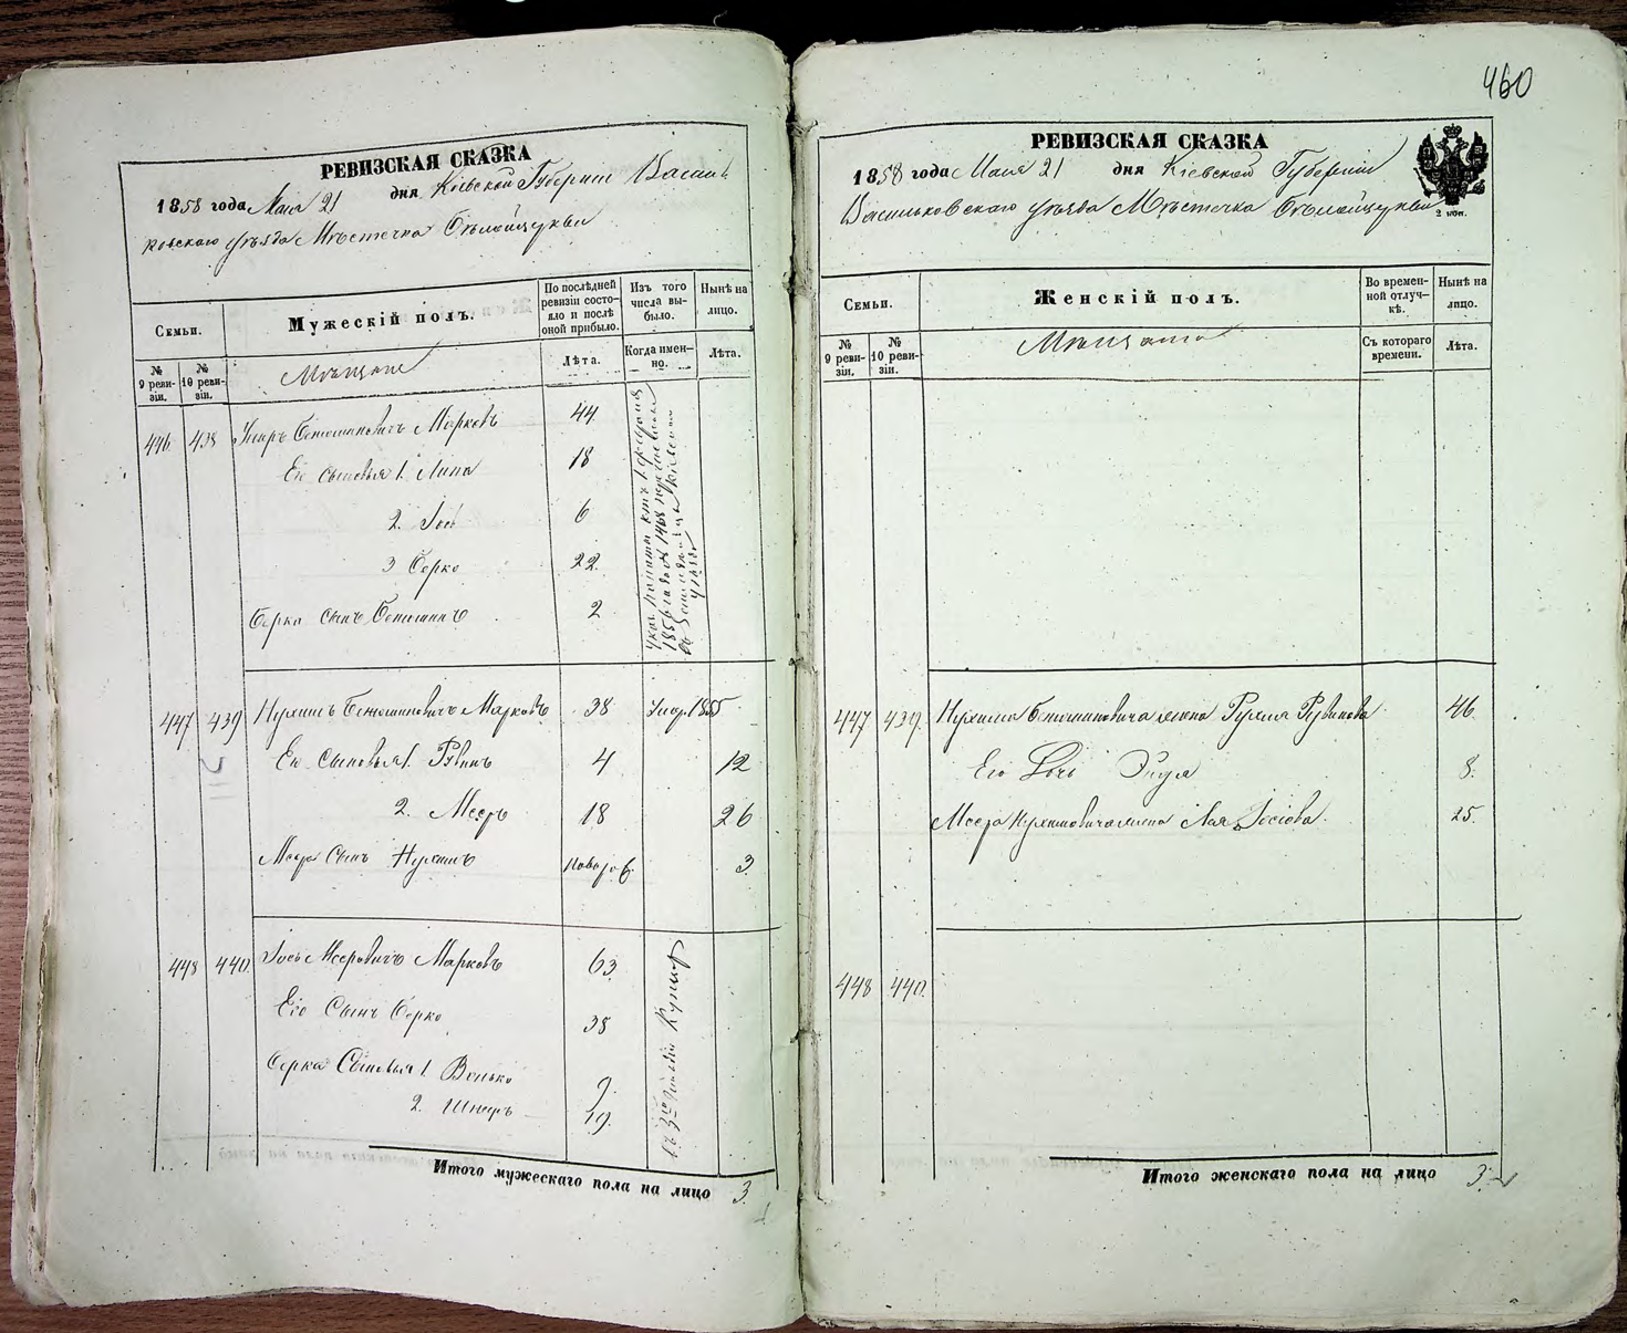 460
РЕВИЗСКАЯ СКАЗКА
1858 года Мая 21 дня Кіевской Губерніи Василь
ковскаго уѣзда Мѣстечка Бѣлойцеркви
Семьи.
Мужескій полъ.
По послѣдней ревизіи состояло и послѣ оной прибыло.
Изъ того числа выбыло.
Нынѣ на лицо.
№ 9 ревизіи.
№ 10 ревизіи.
Мѣщане
Лѣта.
Когда именно.
Лѣта.
446 438 Бенюминовичъ Марковъ 44
Его сыновья 1. 18
2. 6
3 Берко 22.
Берки сынъ Бенюминъ 2
447 439 Нухимъ Бенюминовичъ Марковъ 38 Умер. 1855
Его Сыновья 1. Рувинъ 4 12
2. Мееръ 18 26
Меера Сынъ Нухимъ новорож. 3.
448 440. Іось Мееровичъ Марковъ 63.
Его Сынъ Берко 38
Берка Сыновья 1. Венько 9.
2. Шмеръ 19.
въ 3ю гильдіи Купцовъ
Итого мужескаго пола на лицо 3.
РЕВИЗСКАЯ СКАЗКА
1858 года Мая 21 дня Кіевской Губерніи
Васильковскаго уѣзда Мѣстечка Бѣлойцеркви
2 коп.
Семьи.
Женскій полъ.
Во временной отлучкѣ.
Нынѣ на лицо.
№ 9 ревизіи.
№ 10 ревизіи.
Мѣщане
Съ котораго времени.
Лѣта.
447 439. Нухима Бенюминовича жена Рухля Рувинова 46.
Его Дочь 8.
Меера Нухимовича жена Лая Іосіова. 25.
448 440.
Итого женскаго пола на лицо 3.